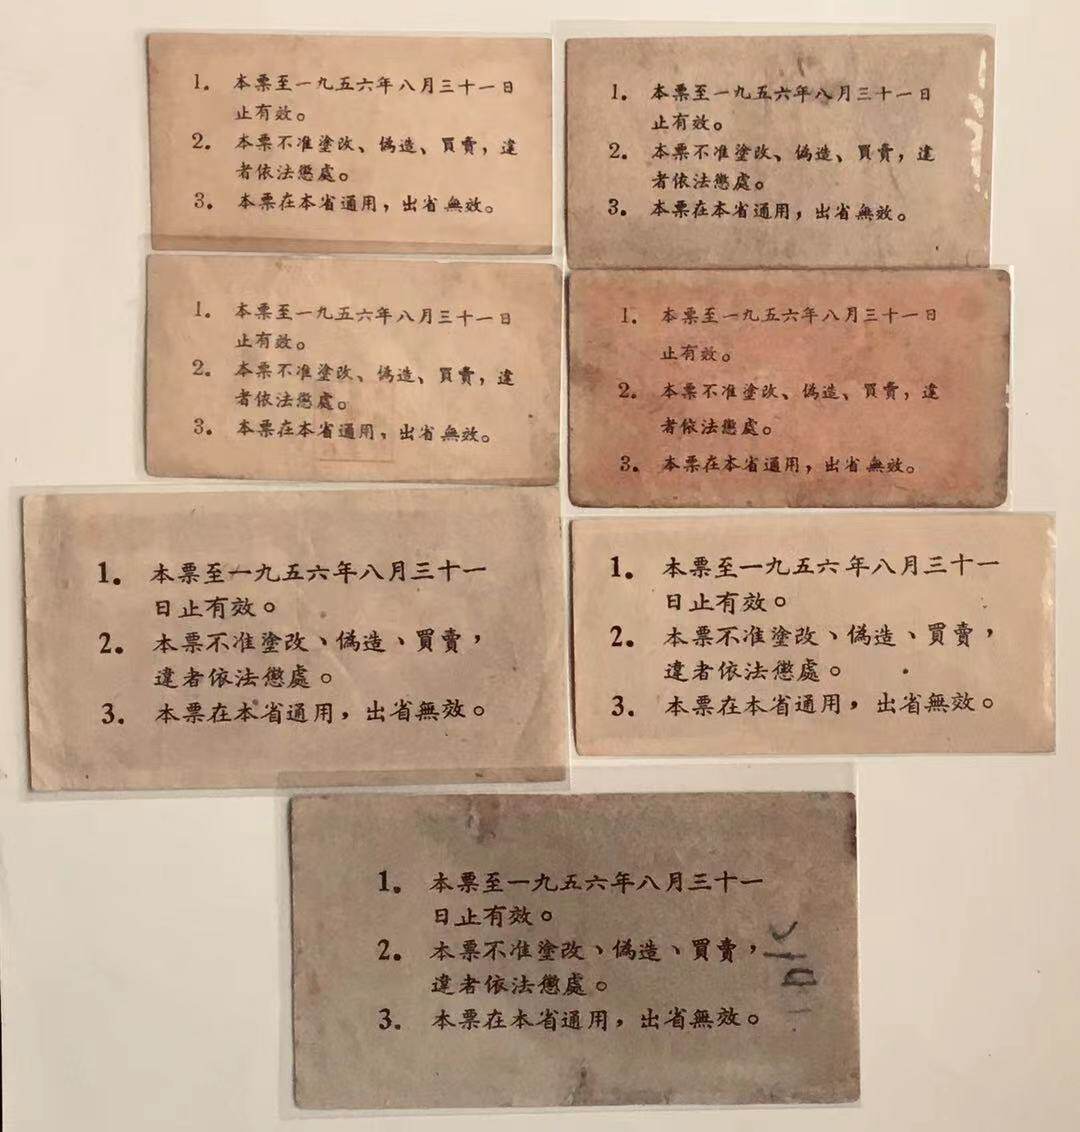 1. 本票至一九五六年八月三十一日
止有效。
2. 本票不准塗改、偽造、買賣，違
者依法懲處。
3. 本票在本省通用，出省無效。
1. 本票至一九五六年八月三十一日
止有效。
2. 本票不准塗改、偽造、買賣，違
者依法懲處。
3. 本票在本省通用，出省無效。
1. 本票至一九五六年八月三十一日
止有效。
2. 本票不准塗改、偽造、買賣，違
者依法懲處。
3. 本票在本省通用，出省無效。
1. 本票至一九五六年八月三十一日
止有效。
2. 本票不准塗改、偽造、買賣，違
者依法懲處。
3. 本票在本省通用，出省無效。
1. 本票至一九五六年八月三十一
日止有效。
2. 本票不准塗改、偽造、買賣，
違者依法懲處。
3. 本票在本省通用，出省無效。
1. 本票至一九五六年八月三十一
日止有效。
2. 本票不准塗改、偽造、買賣，
違者依法懲處。
3. 本票在本省通用，出省無效。
1. 本票至一九五六年八月三十一
日止有效。
2. 本票不准塗改、偽造、買賣，
違者依法懲處。
3. 本票在本省通用，出省無效。